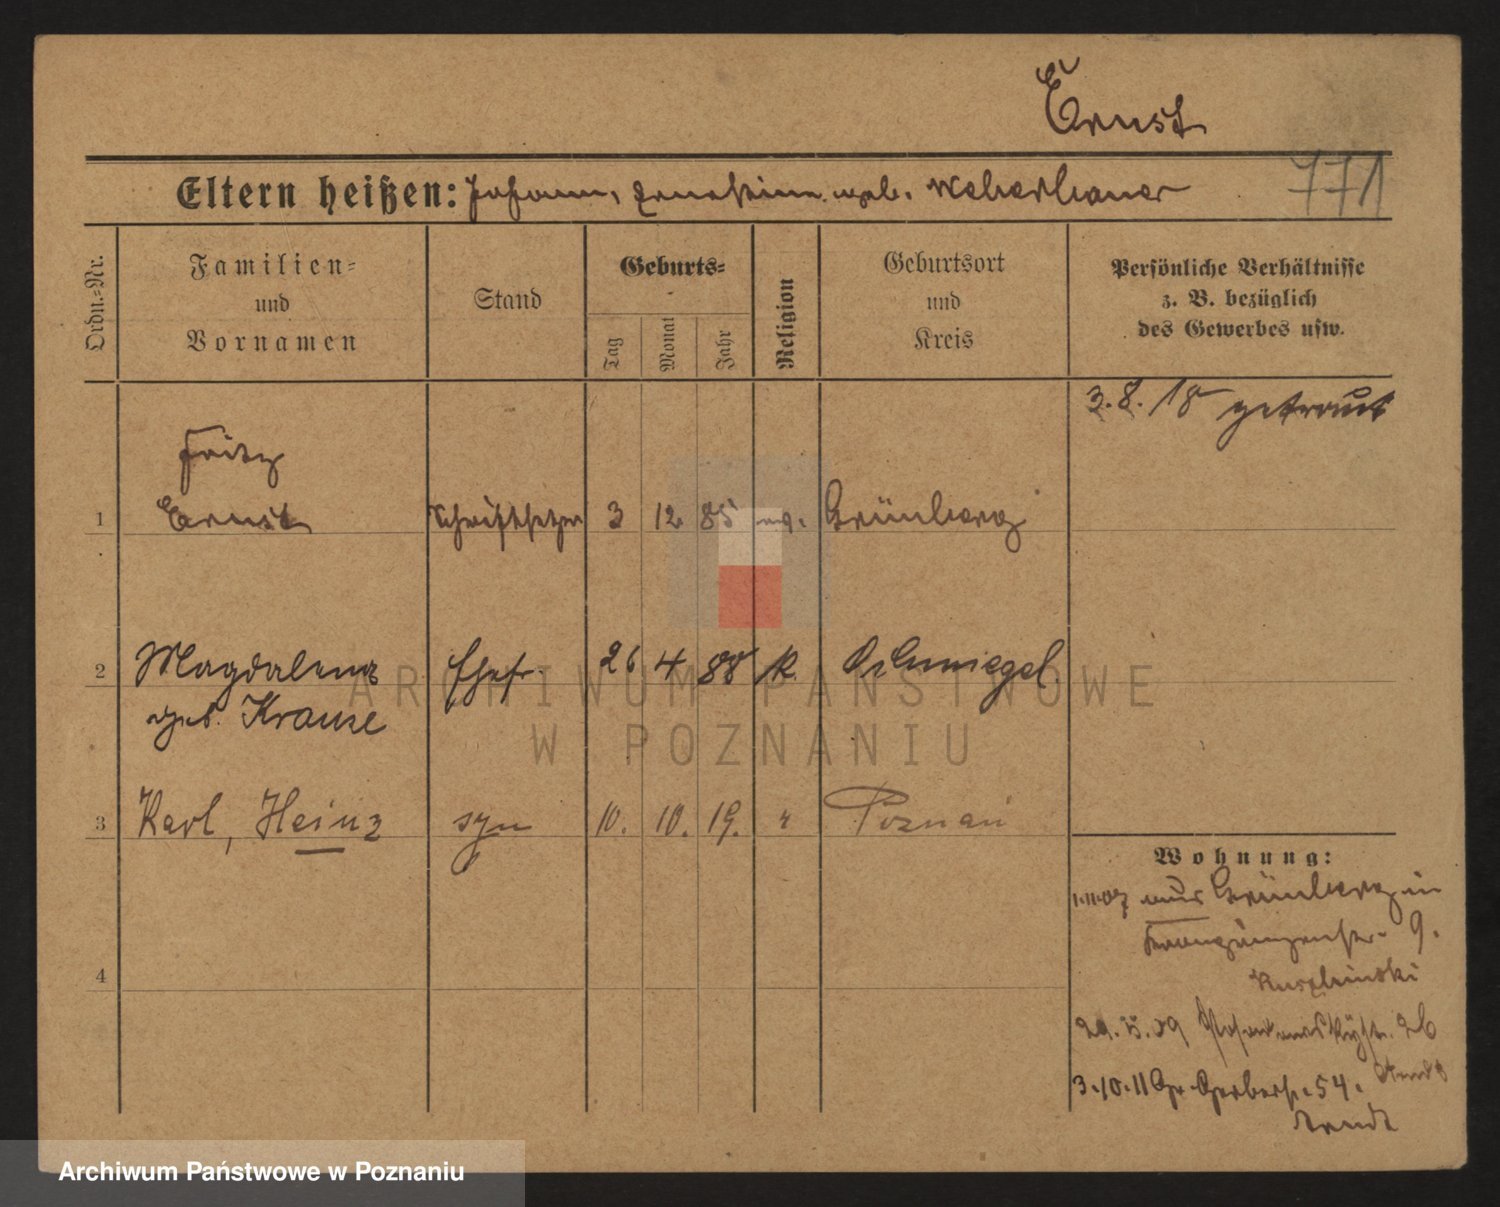 Ernst
Eltern heißen: Johann, Ernestine geb. Weberbauer
771
Ordn.-Nr.
Familien-
und
Vornamen
Stand
Geburts-
Tag
Monat
Jahr
Religion
Geburtsort
und
Kreis
Persönliche Verhältnisse
z. B. bezüglich
des Gewerbes usw.
3.8.18 getraut
Fritz
1 Ernst Schriftsetzer 3 12 85 ev. Grünberg
2 Magdalena Ehefr. 26 4 88 k. Schmiegel
geb. Krause
3 Karl, Heinz syn 10. 10. 19. " Poznań
4
Wohnung:
1.11.07 aus Grünberg in
9.
29. 5. 09 26
Arndt
3.10.11 Gr. Gerberstr. 54.
Arndt
ARCHIWUM PAŃSTWOWE
W POZNANIU
Archiwum Państwowe w Poznaniu